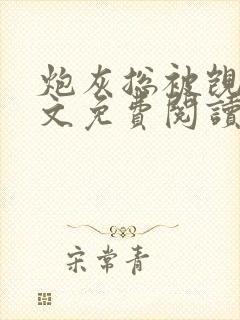 炮灰總被覬
文免費閱讀
宋常青